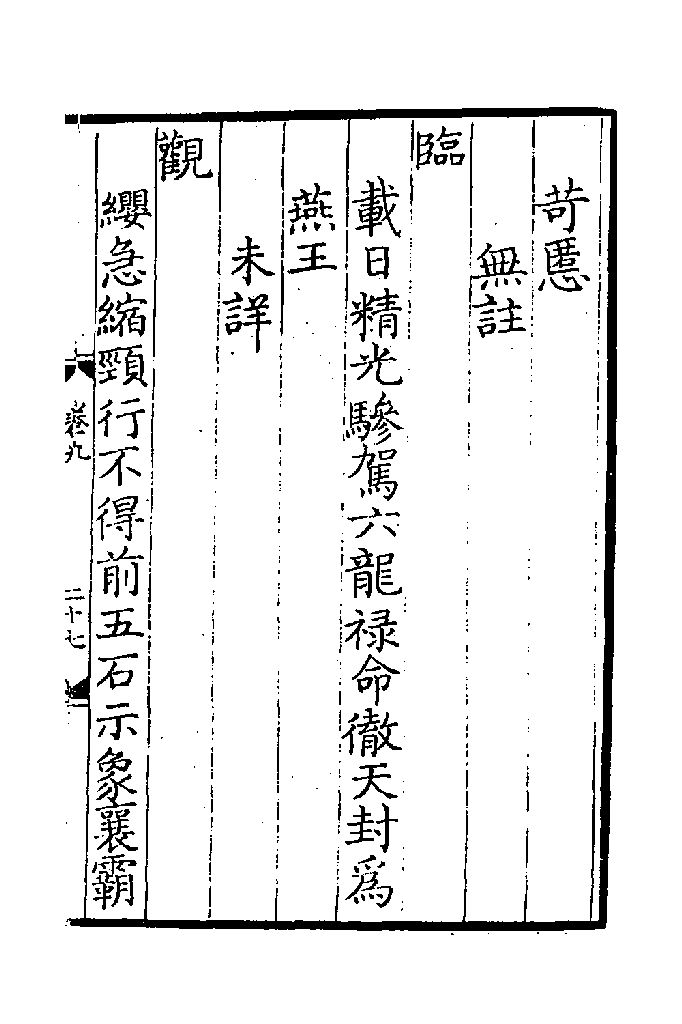 苛慝
無註
臨
載日精光驂駕六龍祿命徹天封為
燕王
未詳
觀
纓急縮頸行不得前五石示象襄霸
卷九
二十七